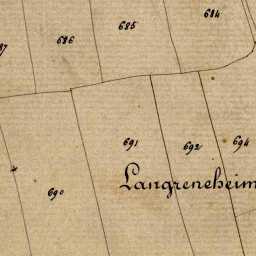 684
685
686
691
692
694
690
Langreneheim